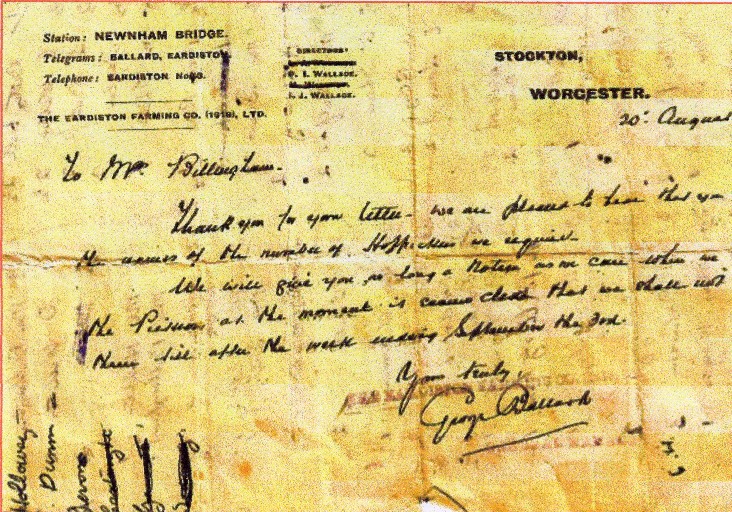 Station: NEWNHAM BRIDGE.
Telegrams: BALLARD, EARDISTON
Telephone: EARDISTON No
THE EARDISTON FARMING CO. (1919), LTD.
DIRECTORS:
WALLACE
J. WALLACE.
STOCKTON,
WORCESTER.
20th August
To Mr. Billingham.
Thank you for your letter - we are pleased to hear that you
the names of the number of Hoppickers we require.
We will give you as long a notice as we can when we
the at the moment it seems clear that we shall not
them till after the week ending September the 3rd.
Yours truly,
George Ballard
Holloway
Dunn